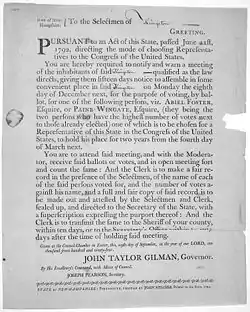 State of New-
Hampshire.
To the Selectmen of
GREETING.
PURSUANT to an Act of this State, passed June 21st,
1792, directing the mode of choosing Representa-
tives to the Congress of the United States.
You are hereby required to notify and warn a meeting
of the inhabitants of said qualified as the law
directs, giving them fifteen days notice to assemble in some
convenient place in said on Monday the eighth
day of December next, for the purpose of voting, by bal-
lot, for one of the following persons, viz. ABIEL FOSTER,
Esquire, or PAINE WINGATE, Esquire, (they being the
two persons who have the highest number of votes next
to those already elected) one of which is to be chosen for a
Representative of this State in the Congress of the United
States, to hold his place for two years from the fourth day
of March next.
You are to attend said meeting, and with the Modera-
tor, receive said ballots or votes, and in open meeting sort
and count the same: And the Clerk is to make a fair re-
cord in the presence of the Selectmen, of the name of each
of the said persons voted for, and the number of votes a-
gainst his name, and a full and fair copy of said record, is to
be made out and attested by the Selectmen and Clerk,
sealed up, and directed to the Secretary of the State, with
a superscription expressing the purport thereof: And the
Clerk is to transmit the same to the Sheriff of your county,
within ten days, or to the Secretary's Office within
days after the time of holding said meeting.
Given at the Council-Chamber in Exeter, this day of September, in the year of our LORD, one
thousand seven hundred and ninety-four.
JOHN TAYLOR GILMAN, Governor.
By His Excellency's Command, with Advice of Council.
JOSEPH PEARSON, Secretary.